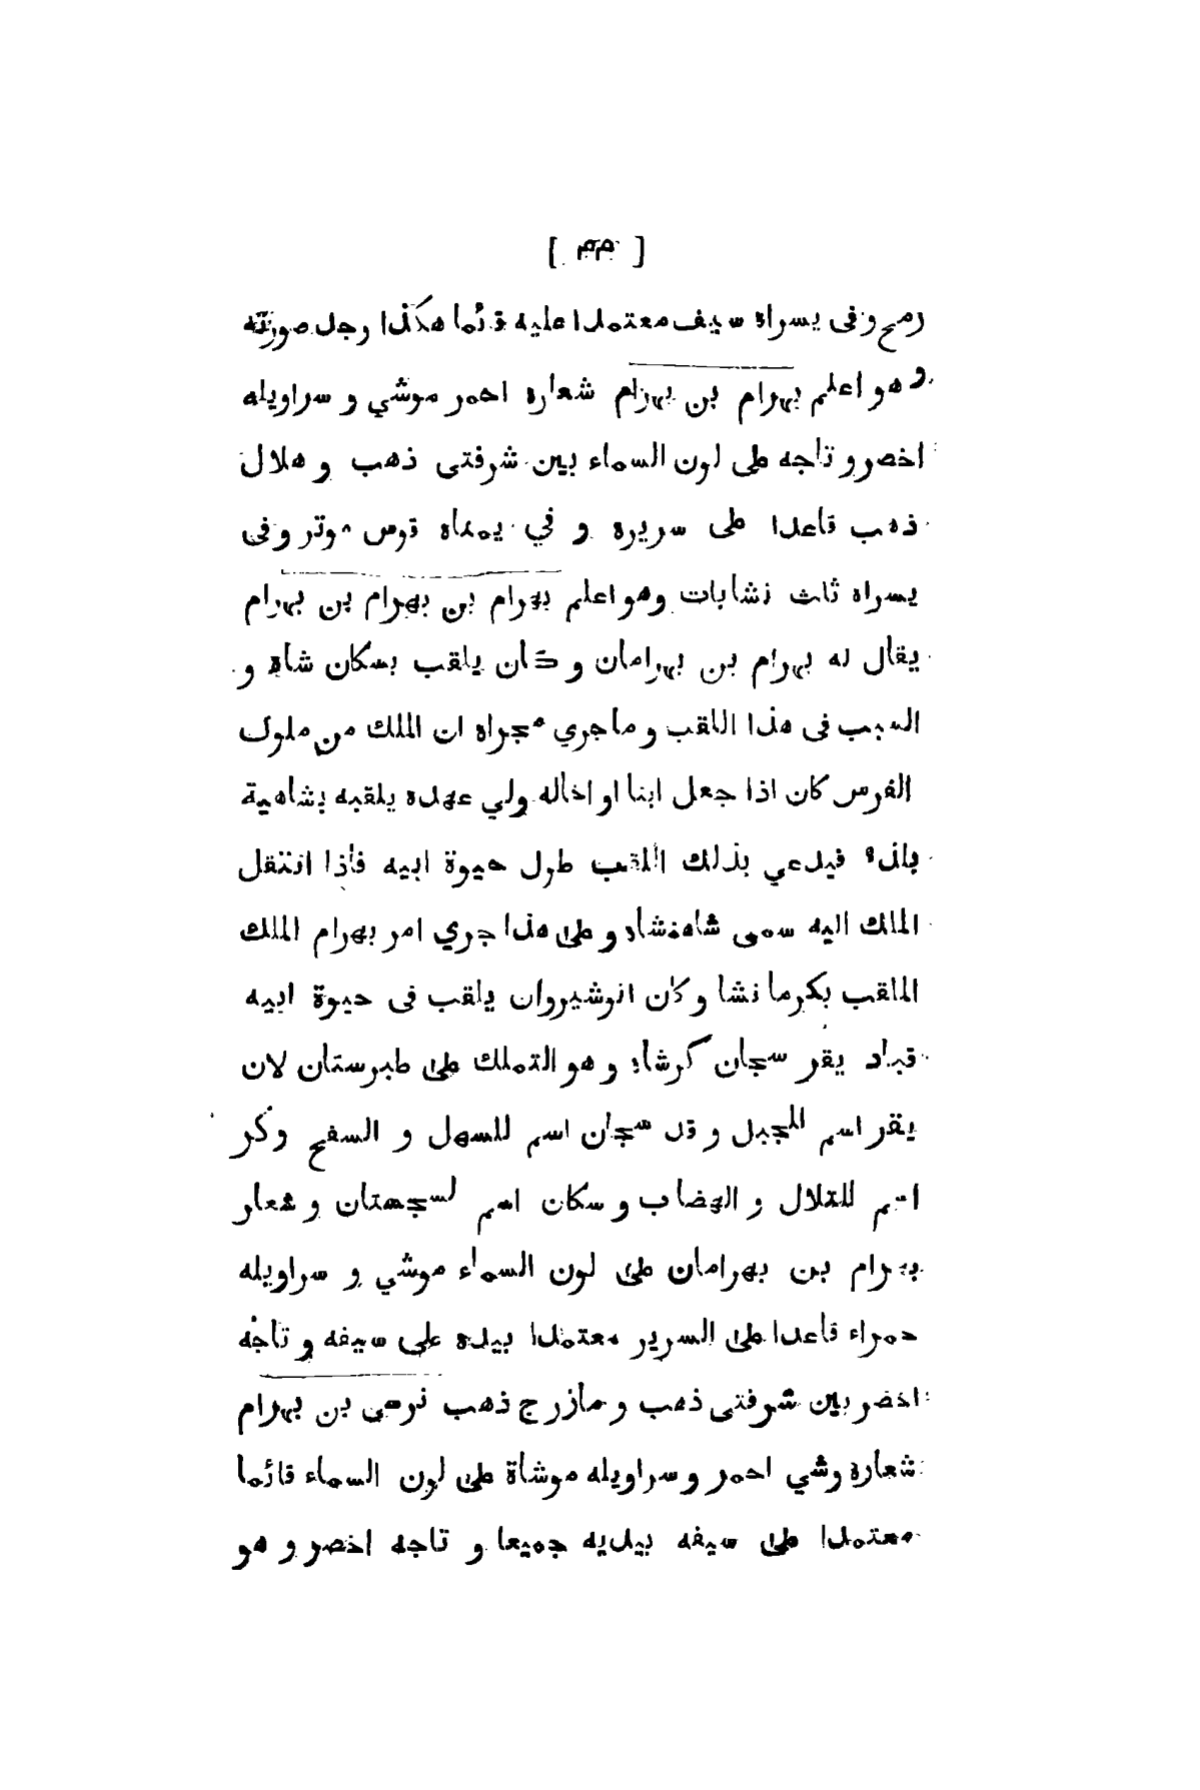 [ ٣٣ ]
رمح و فى يسراه سيف معتمدا عليه قائما هكذا رجل صورته
و هو اعلم بهرام بن بهرام شعاره احمر موشي و سراويله
اخصر و تاجه على لون السماء بين شرفتى ذهب و هلال
ذهب قاعدا على سريره و في يمناه قوس موتر و فى
يسراه ثلث نشابات وهو اعلم بهرام بن بهرام بن بهرام
يقال له بهرام بن بهرامان و كان يلقب بسكان شاه و
السبب فى هذا اللقب و ما جري مجراه ان الملك من ملوك
الفرس كان اذا جعل ابنا او اخاله ولي عهده يلقبه بشاهية
بلد فيدعي بذلك اللقب طول حيوة ابيه فاذا انتقل
الملك اليه سمى شاهنشاه و على هذا جري امر بهرام الملك
الملقب بكرما نشا و كان انوشيروان يلقب فى حيوة ابيه
قباد يقر سجان كرشاه و هو التملك على طبرستان لان
يقر اسم للجبل و قد سجان اسم للسهل و السفح و كر
اسم للتلال و الهضاب و سكان اسم لسجهتان و شعار
بهرام بن بهرامان على لون السماء موشي و سراويله
حمراء قاعدا على السرير معتمدا بيده على سيفه و تاجه
اخضر بين شرفتى ذهب و مازرج ذهب نرسى بن بهرام
شعاره وشي احمر و سراويله موشاة على لون السماء قائما
معتمدا على سيفه بيديه جميعا و تاجه اخصر و هو